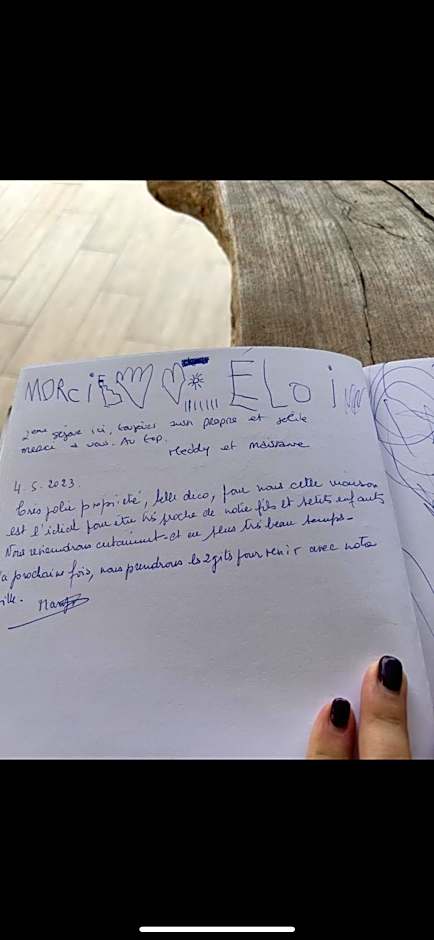 MORCi ÉLoi
2eme séjour ici, toujours aussi propre et jolie
merci à vous. Au top.
Meddy et
4.5.2023.
Très jolie propriété, belle déco, pour nous cette maison
est l'idéal pour être très proche de notre fils et petits enfants
Nous reviendrons certainement et en plus très beau temps.
la prochaine fois, nous prendrons les 2 gîtes pour venir avec notre
fille.